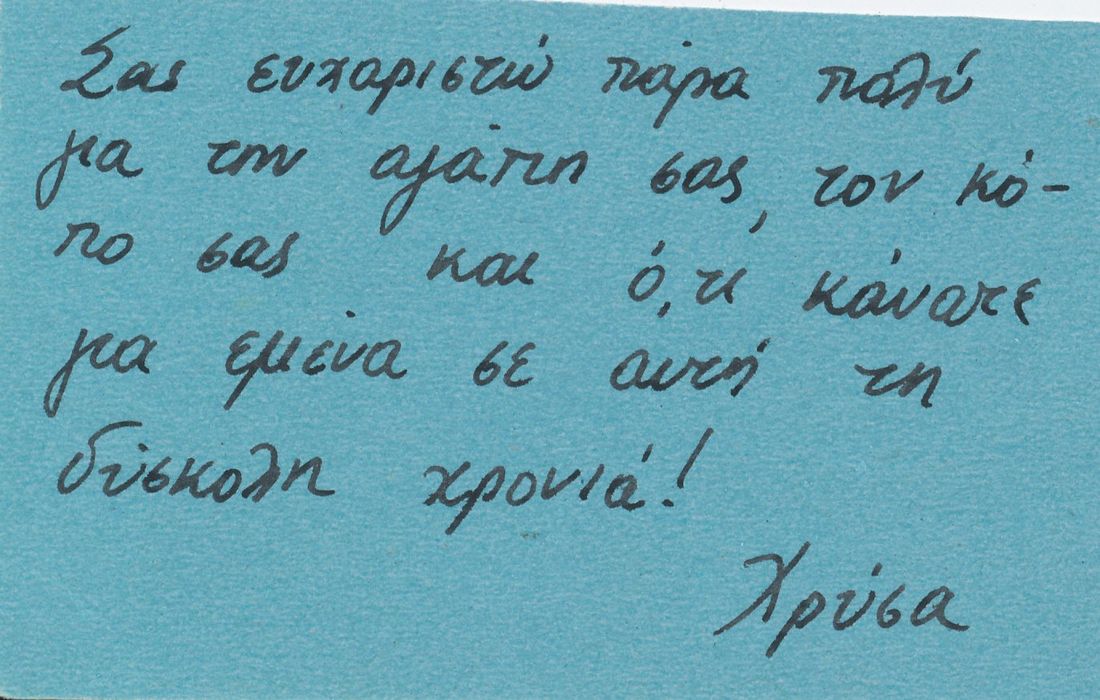 Σας ευχαριστώ πάρα πολύ
για την αγάπη σας, τον κό-
πο σας και ό,τι κάνατε
για εμένα σε αυτή τη
δύσκολη χρονιά!
Χρύσα